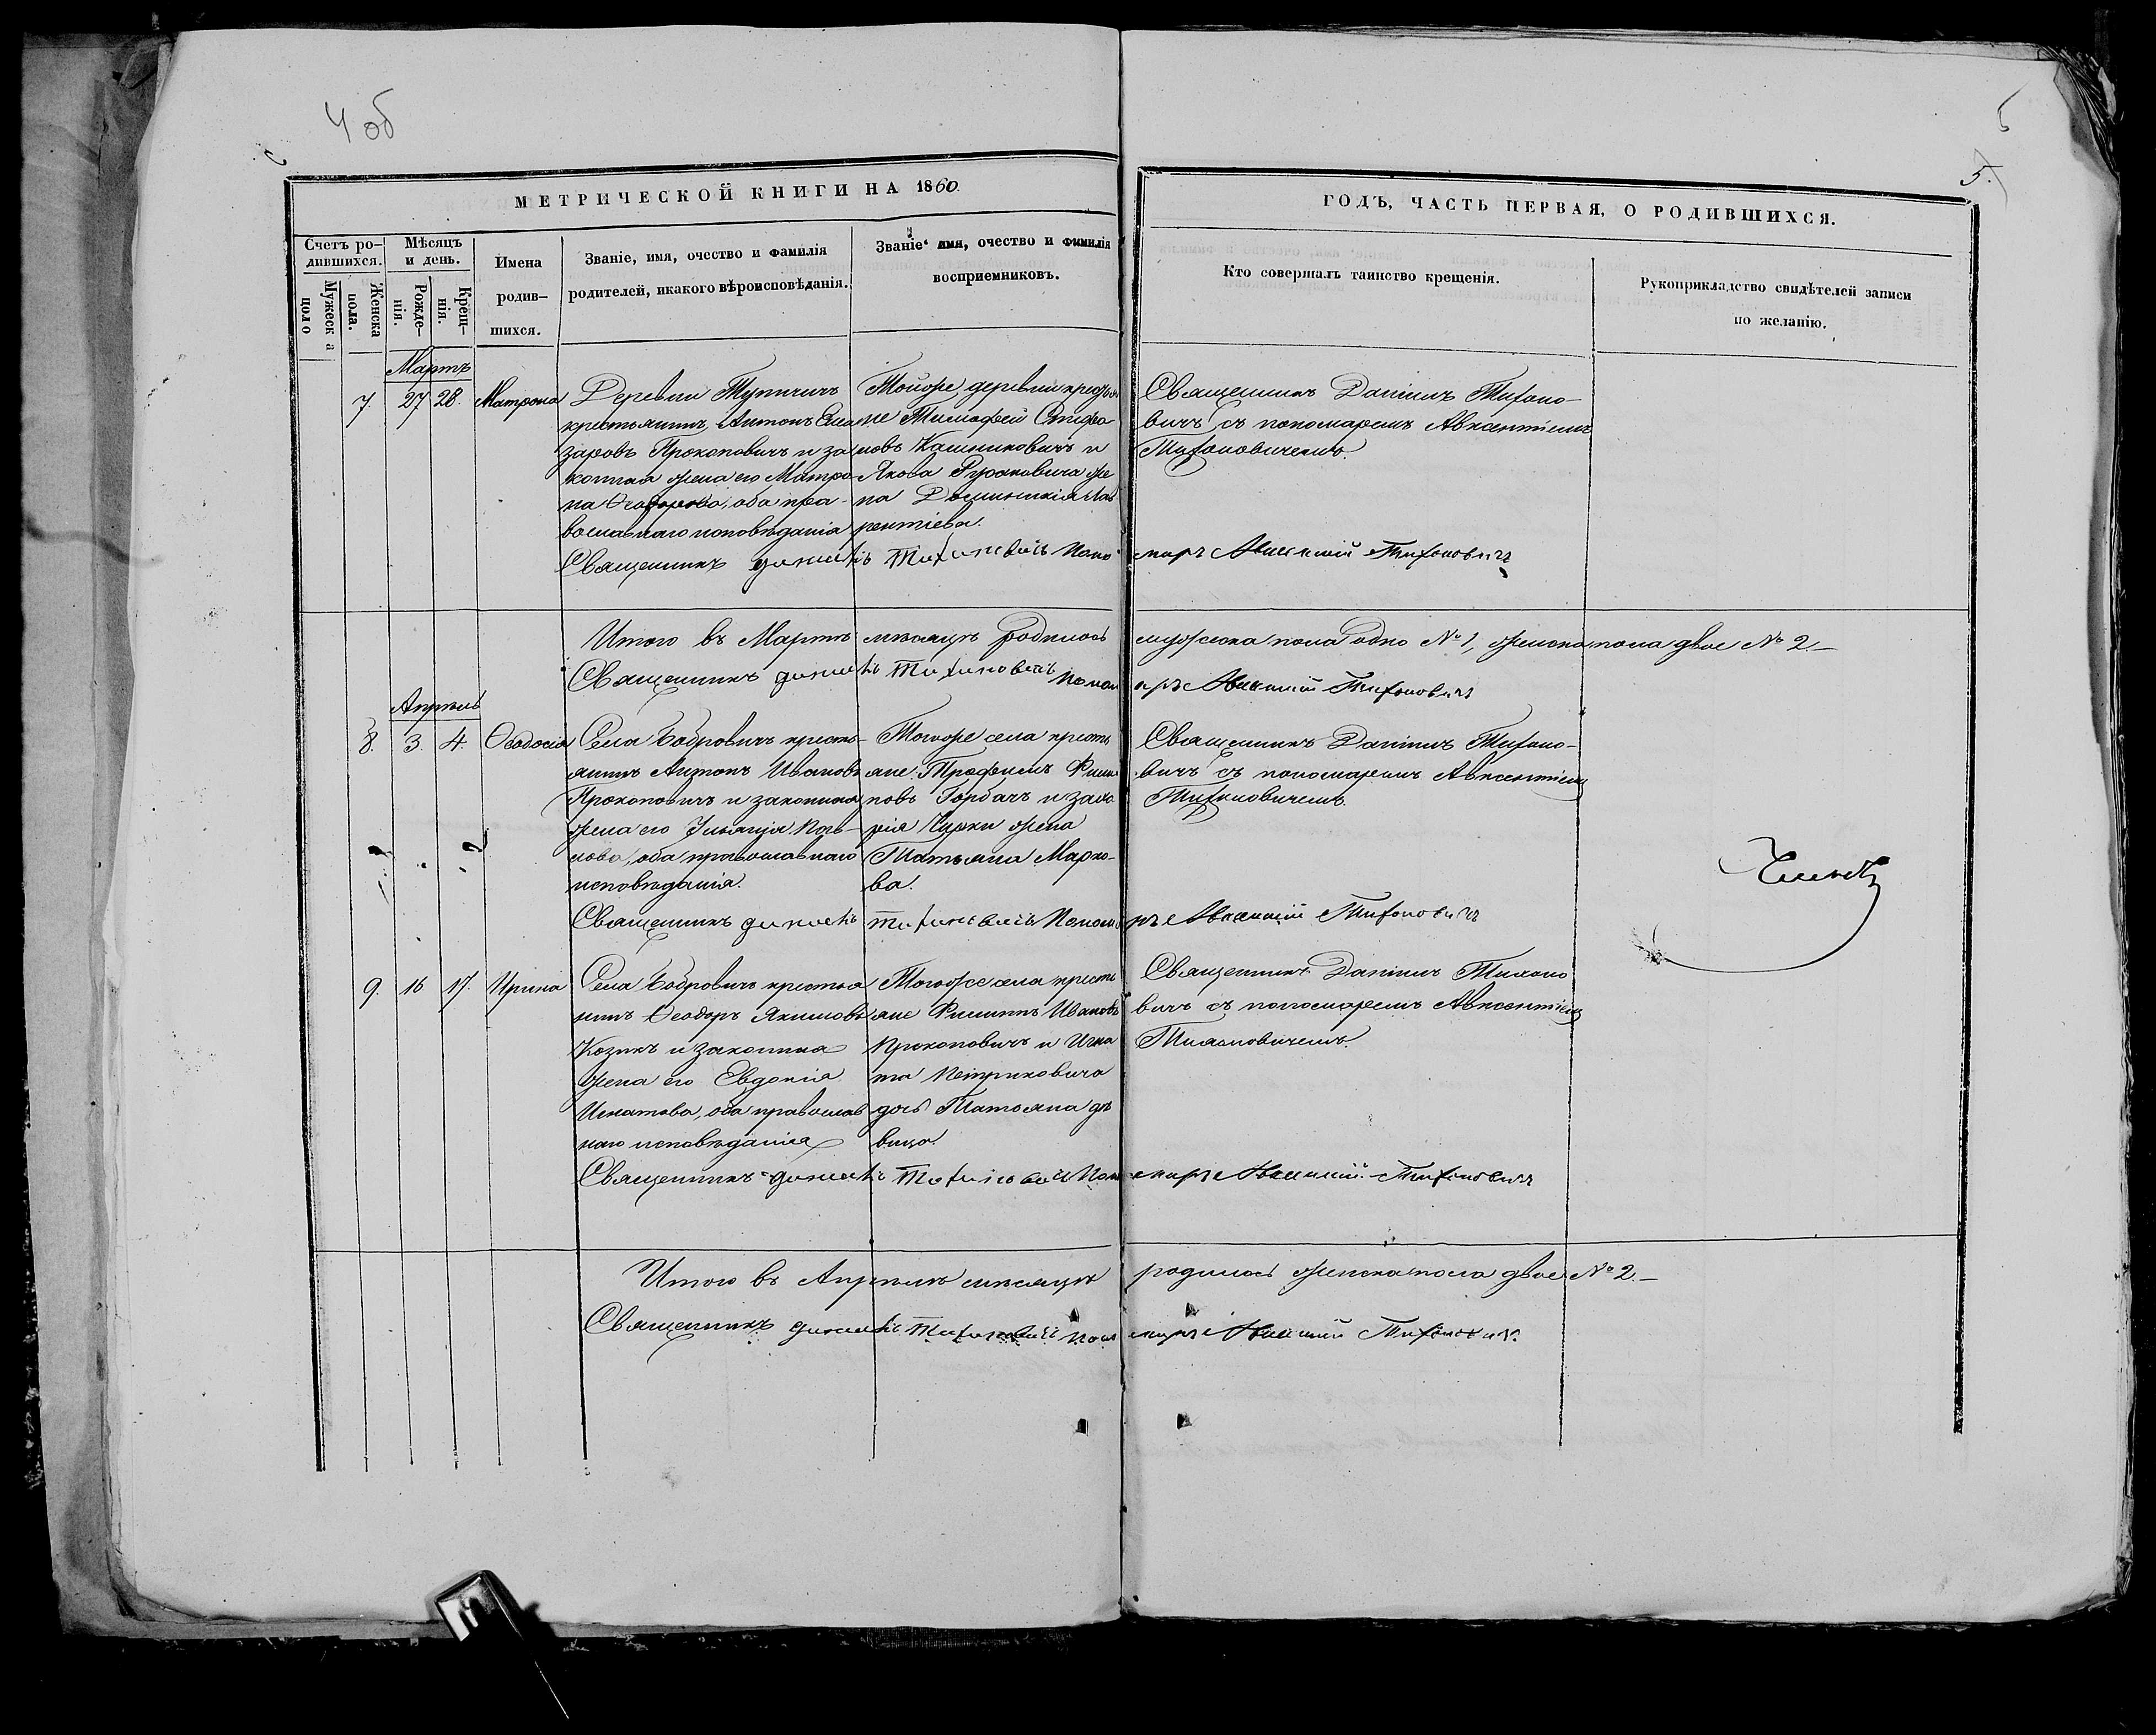 4 об
5
5.
МЕТРИЧЕСКОЙ КНИГИ НА 1860.
ГОДЪ, ЧАСТЬ ПЕРВАЯ, О РОДИВШИХСЯ.
Счетъ ро-
дившихся.
Мужеска
пола
Женска
пола.
Мѣсяцъ
и день.
Рожде-
нія.
Крещ-
нія.
Имена
родив-
шихся.
Званіе, имя, очество и фамилія
родителей, икакого вѣроисповѣданія.
Званіе имя, очество и фимилія
восприемниковъ.
Кто совершалъ таинство крещенія.
Рукоприкладство свидѣтелей записи
по желанію.
Мартъ
7. 27 28. Матрона
Деревни Тупичичъ
крестьянинъ Антонъ Елиа
заровъ Прокоповичъ и за
конная жена его Матро-
на Ѳеодорова, оба пра-
вославнаго исповѣданія
Тойже деревни крестья
не Тимофей Стефа
новъ Кашниковичъ и
Якова Рудаковича же
на Доминикія Лав
рентіева.
Священникъ Даніилъ Тихоно-
вичъ съ пономаремъ Авксентіемъ
Тихоновичемъ.
Священникъ Даніилъ Тихоновичъ Поно
марь Авксентій Тихоновичъ
Итого въ Мартѣ мѣсяцѣ родилось
мужеска пола одно № 1, женска пола двое № 2.—
Священникъ Даніилъ Тихоновичъ Поном
арь Авксентій Тихоновичъ
Апрѣль
8. 3. 4. Ѳеодосія
Села Бобровичъ кресть-
янинъ Антонъ Ивановъ
Прокоповичъ и законная
жена его Ульянія
нова, оба православнаго
исповѣданія.
Тогоже села кресть
яне Трофимъ Филип
повъ Горбачъ и Заха
рія жена
Татьяна Марко-
ва.
Священникъ Даніилъ Тихоно-
вичъ съ пономаремъ Авксентіемъ
Тихоновичемъ.
Священникъ Даніилъ Тихоновичъ Понома
рь Авксентій Тихоновичъ
9. 16 17. Ирина
Села Бобровичъ крестья
нинъ Ѳеодоръ Якимовъ
Козикъ и законная
жена его Евдокія
Игнатова, оба православ
наго исповѣданія
Тогоже села кресть
яне Филиппъ Ивановъ
Прокоповичъ и Игна
та Петриковича
дочь Татьяна дѣ
вица.
Священникъ Даніилъ Тихоно
вичъ съ пономаремъ Авксентіемъ
Тихоновичемъ.
Священникъ Даніилъ Тихоновичъ Поно
марь Авксентій Тихоновичъ
Итого въ Апрѣлѣ мѣсяцѣ
родилось женска пола двое № 2.—
Священникъ Даніилъ Тихоновичъ Поно
марь Авксентій Тихоновичъ.